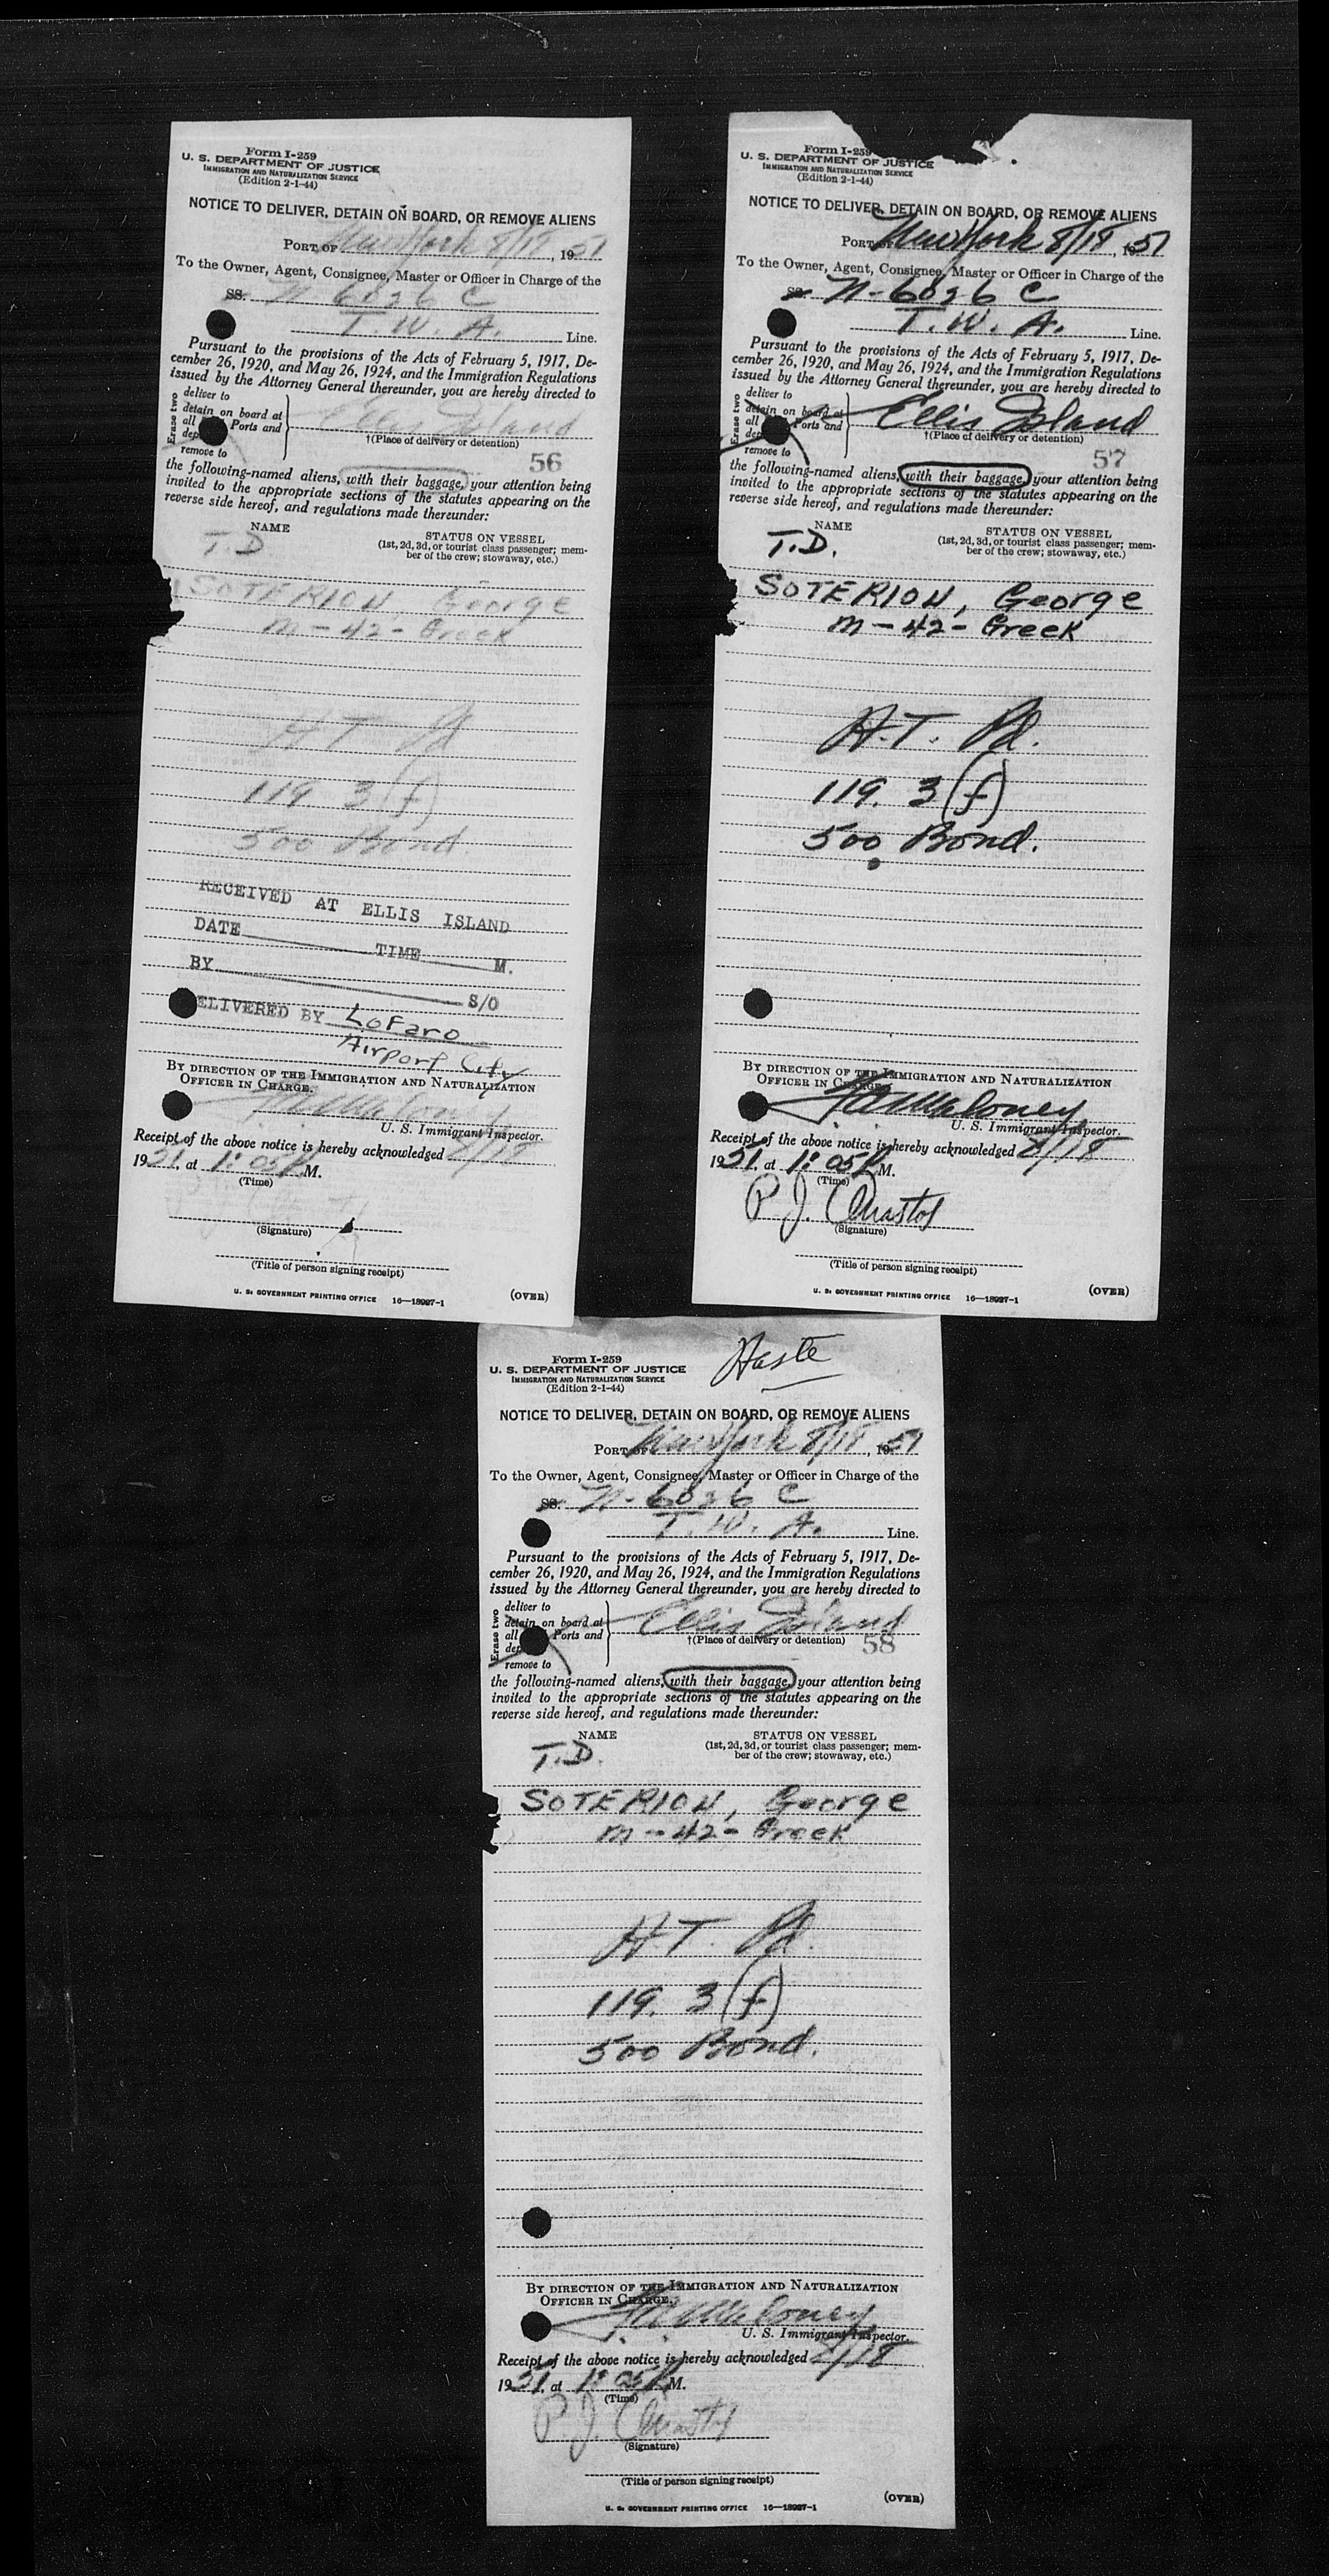 Form I-259
U. S. DEPARTMENT OF JUSTICE
IMMIGRATION AND NATURALIZATION SERVICE
(Edition 2-1-44)
NOTICE TO DELIVER, DETAIN ON BOARD, OR REMOVE ALIENS
PORT OF New York 8/18, 1951
To the Owner, Agent, Consignee, Master or Officer in Charge of the
SS. N 6026 C
T. W. A. Line.
Pursuant to the provisions of the Acts of February 5, 1917, De-
cember 26, 1920, and May 26, 1924, and the Immigration Regulations
issued by the Attorney General thereunder, you are hereby directed to
Erase two
deliver to
detain on board at
all Ports and
remove to
Ellis Island
†(Place of delivery or detention)
56
the following-named aliens, with their baggage, your attention being
invited to the appropriate sections of the statutes appearing on the
reverse side hereof, and regulations made thereunder:
NAME STATUS ON VESSEL
T.D (1st, 2d, 3d, or tourist class passenger; mem-
ber of the crew; stowaway, etc.)
SOTERION George
m-42-Greek
H T Pd
119. 3 (f)
500 Bond
RECEIVED AT ELLIS ISLAND
DATE TIME M.
BY S/O
ELIVERED BY LoFaro
Airport City
BY DIRECTION OF THE IMMIGRATION AND NATURALIZATION
OFFICER IN CHARGE.
Maloney
U. S. Immigrant Inspector.
Receipt of the above notice is hereby acknowledged 8/18
1951, at 1:05 P.M.
(Time)
(Signature)
(Title of person signing receipt)
U. S. GOVERNMENT PRINTING OFFICE 16—18927-1 (OVER)
Form I-259
U. S. DEPARTMENT OF JUSTICE
IMMIGRATION AND NATURALIZATION SERVICE
(Edition 2-1-44)
NOTICE TO DELIVER, DETAIN ON BOARD, OR REMOVE ALIENS
PORT OF New York 8/18, 1951
To the Owner, Agent, Consignee, Master or Officer in Charge of the
SS. N-6026 C
T. W. A. Line.
Pursuant to the provisions of the Acts of February 5, 1917, De-
cember 26, 1920, and May 26, 1924, and the Immigration Regulations
issued by the Attorney General thereunder, you are hereby directed to
Erase two
deliver to
detain on board at
all Ports and
remove to
Ellis Island
†(Place of delivery or detention)
57
the following-named aliens, with their baggage, your attention being
invited to the appropriate sections of the statutes appearing on the
reverse side hereof, and regulations made thereunder:
NAME STATUS ON VESSEL
T.D. (1st, 2d, 3d, or tourist class passenger; mem-
ber of the crew; stowaway, etc.)
SOTERION, George
m-42-Greek
H.T. Pd.
119. 3 (f)
500 Bond.
BY DIRECTION OF THE IMMIGRATION AND NATURALIZATION
OFFICER IN CHARGE.
Maloney
U. S. Immigrant Inspector.
Receipt of the above notice is hereby acknowledged 8/18
1951, at 1:05 P.M.
(Time)
P. J.
(Signature)
(Title of person signing receipt)
U. S. GOVERNMENT PRINTING OFFICE 16—18927-1 (OVER)
Haste
Form I-259
U. S. DEPARTMENT OF JUSTICE
IMMIGRATION AND NATURALIZATION SERVICE
(Edition 2-1-44)
NOTICE TO DELIVER, DETAIN ON BOARD, OR REMOVE ALIENS
PORT OF New York 8/18, 1951
To the Owner, Agent, Consignee, Master or Officer in Charge of the
SS. N-6026 C
T. W. A. Line.
Pursuant to the provisions of the Acts of February 5, 1917, De-
cember 26, 1920, and May 26, 1924, and the Immigration Regulations
issued by the Attorney General thereunder, you are hereby directed to
Erase two
deliver to
detain on board at
all Ports and
remove to
Ellis Island
†(Place of delivery or detention)
58
the following-named aliens, with their baggage, your attention being
invited to the appropriate sections of the statutes appearing on the
reverse side hereof, and regulations made thereunder:
NAME STATUS ON VESSEL
T.D. (1st, 2d, 3d, or tourist class passenger; mem-
ber of the crew; stowaway, etc.)
SOTERION, George
m-42-Greek
H T. Pd.
119. 3 (f)
500 Bond.
BY DIRECTION OF THE IMMIGRATION AND NATURALIZATION
OFFICER IN CHARGE.
Maloney
U. S. Immigrant Inspector.
Receipt of the above notice is hereby acknowledged 8/18
1951, at 1:05 P.M.
(Time)
P. J.
(Signature)
(Title of person signing receipt)
(OVER)
U. S. GOVERNMENT PRINTING OFFICE 16—18927-1